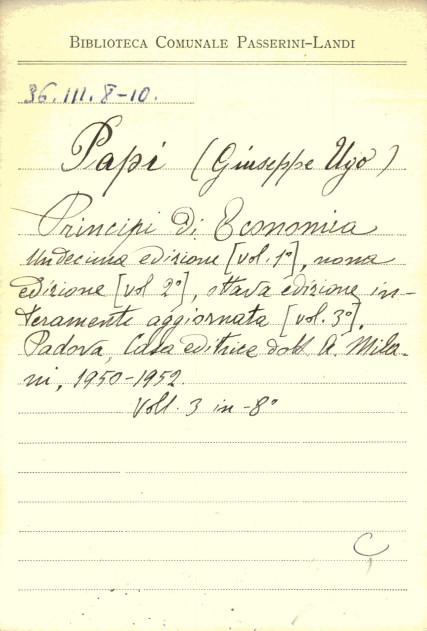 BIBLIOTECA COMUNALE PASSERINI-LANDI
36.III.8-10.
Papi (Giuseppe Ugo)
Principi di Economia
Undecima edizione [vol. 1°], nona
edizione [vol 2°], ottava edizione in-
teramente aggiornata [vol. 3°].
Padova, Casa editrice dott. A. Mila-
ni, 1950-1952.
Voll. 3 in-8°
C